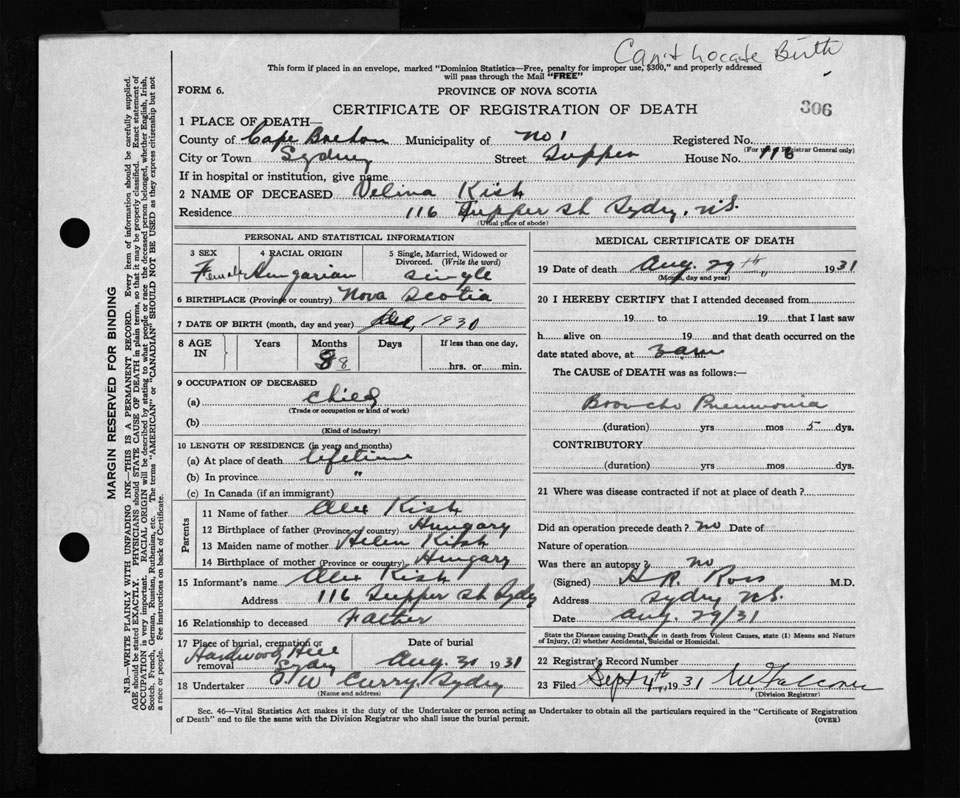 Can't Locate Birth
This form if placed in an envelope, marked "Dominion Statistics—Free, penalty for improper use, $300," and properly addressed
will pass through the Mail "FREE"
FORM 6.
PROVINCE OF NOVA SCOTIA
CERTIFICATE OF REGISTRATION OF DEATH
306
1 PLACE OF DEATH—
County of Cape Breton Municipality of No 1 Registered No.
(For use of Registrar General only)
City or Town Sydney Street Tupper House No. 116
If in hospital or institution, give name
2 NAME OF DECEASED Velina Kish
Residence 116 Tupper St Sydney, N.S.
(Usual place of abode)
PERSONAL AND STATISTICAL INFORMATION
3 SEX 4 RACIAL ORIGIN 5 Single, Married, Widowed or
Divorced. (Write the word)
Female Hungarian single
6 BIRTHPLACE (Province or country) Nova Scotia
7 DATE OF BIRTH (month, day and year) Dec, 1930
8 AGE IN Years Months Days If less than one day,
8 8 hrs. or min.
9 OCCUPATION OF DECEASED
(a) child
(Trade or occupation or kind of work)
(b)
(Kind of industry)
10 LENGTH OF RESIDENCE (in years and months)
(a) At place of death lifetime
(b) In province "
(c) In Canada (if an immigrant)
Parents
11 Name of father Alex Kish
12 Birthplace of father (Province or country) Hungary
13 Maiden name of mother Helen Kish
14 Birthplace of mother (Province or country) Hungary
15 Informant's name Alex Kish
Address 116 Tupper St Sydy
16 Relationship to deceased Father
17 Place of burial, cremation or removal Date of burial
Hardwood Hill Sydney Aug. 30 1931
18 Undertaker J. W Curry. Sydney
(Name and address)
MEDICAL CERTIFICATE OF DEATH
19 Date of death Aug. 29th, 1931
(Month, day and year)
20 I HEREBY CERTIFY that I attended deceased from
19 to 19 that I last saw
h alive on 19 and that death occurred on the
date stated above, at 3 am
The CAUSE of DEATH was as follows:—
Broncho Pneumonia
(duration) yrs mos 5 dys.
CONTRIBUTORY
(duration) yrs mos dys.
21 Where was disease contracted if not at place of death?
Did an operation precede death? no Date of
Nature of operation
Was there an autopsy? no
(Signed) H R. Ross M.D.
Address Sydney N.S.
Date Aug. 29/31
State the Disease causing Death, or in death from Violent Causes, state (1) Means and Nature
of Injury, (2) whether Accidental, Suicidal or Homicidal.
22 Registrar's Record Number
23 Filed Sept 4th 1931
(Division Registrar)
Sec. 46—Vital Statistics Act makes it the duty of the Undertaker or person acting as Undertaker to obtain all the particulars required in the "Certificate of Registration
of Death" and to file the same with the Division Registrar who shall issue the burial permit.
(OVER)
MARGIN RESERVED FOR BINDING
N.B.—WRITE PLAINLY WITH UNFADING INK—THIS IS A PERMANENT RECORD. Every item of information should be carefully supplied.
AGE should be stated EXACTLY. PHYSICIANS should STATE CAUSE OF DEATH in plain terms, so that it may be properly classified. Exact statement of
OCCUPATION is very important. RACIAL ORIGIN will be described by stating to what people or race the deceased person belonged, whether English, Irish,
Scotch, French, German, Russian, Ruthenian, etc. The terms "AMERICAN" or "CANADIAN" SHOULD NOT BE USED as they express citizenship but not
a race or people. See instructions on back of Certificate.